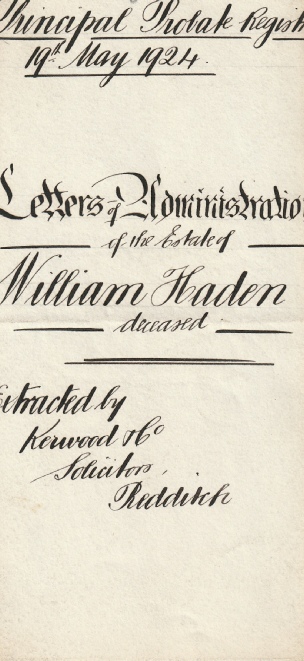 Principal Probate Regist
19th May 1924.
Letters of Administratio
of the Estate of
William Haden
deceased
Extracted by
Kerwood & Co
Solicitors,
Redditch